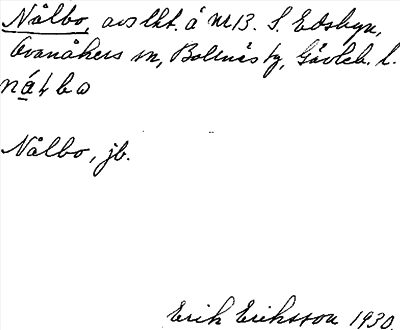 Nålbo, avs lht. å nr 13. S. Edsbyn,
Ovanåkers sn, Bollnäs tg, Gävleb. l.
nálbo
Nålbo, jb.
Erik Eriksson 1930.